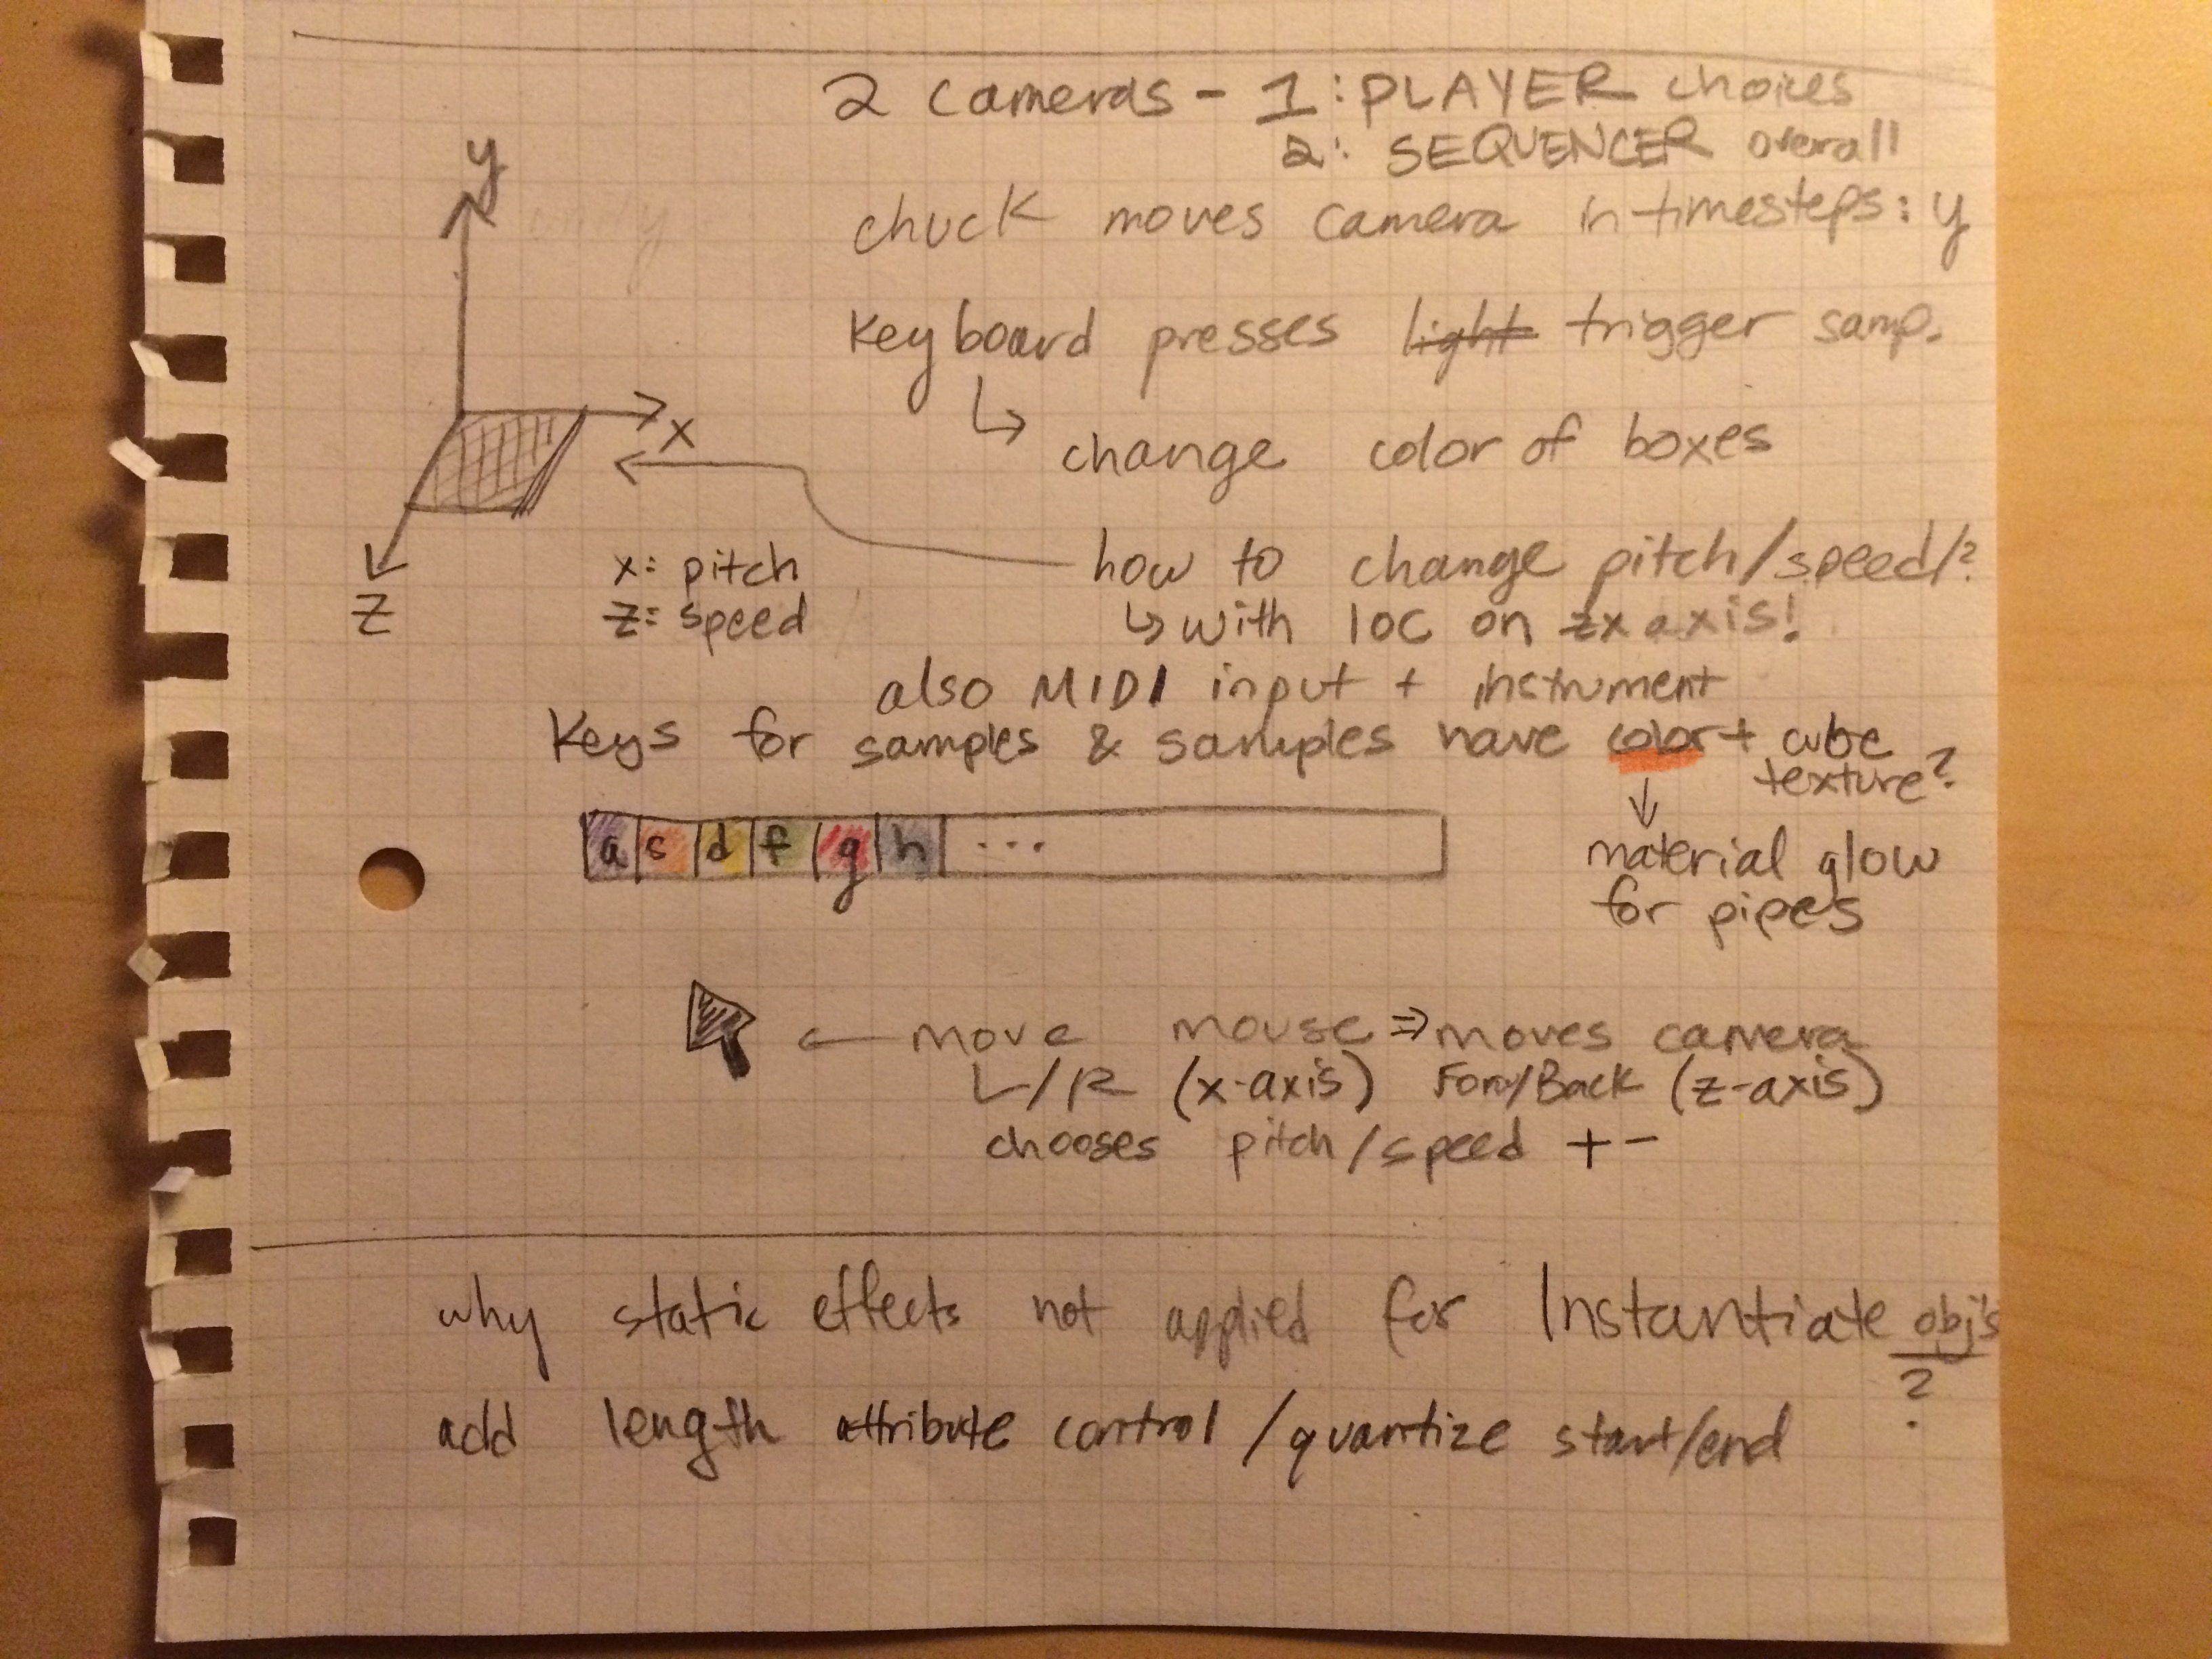 2 cameras - 1: PLAYER choices
2: SEQUENCER overall
y
only
chuck moves camera in timesteps: y
Keyboard presses light trigger samp.
↳ change color of boxes
x
z
x: pitch
z: speed
how to change pitch/speed/?
↳ with loc on zx axis!
also MIDI input + instrument
Keys for samples & samples have color + cube
texture?
a s d f g h ...
material glow
for pipes
← move mouse ⇒ moves camera
L/R (x-axis) Forw/Back (z-axis)
chooses pitch/speed + -
why static effects not applied for Instantiate obj's
?
add length attribute control /quantize start/end